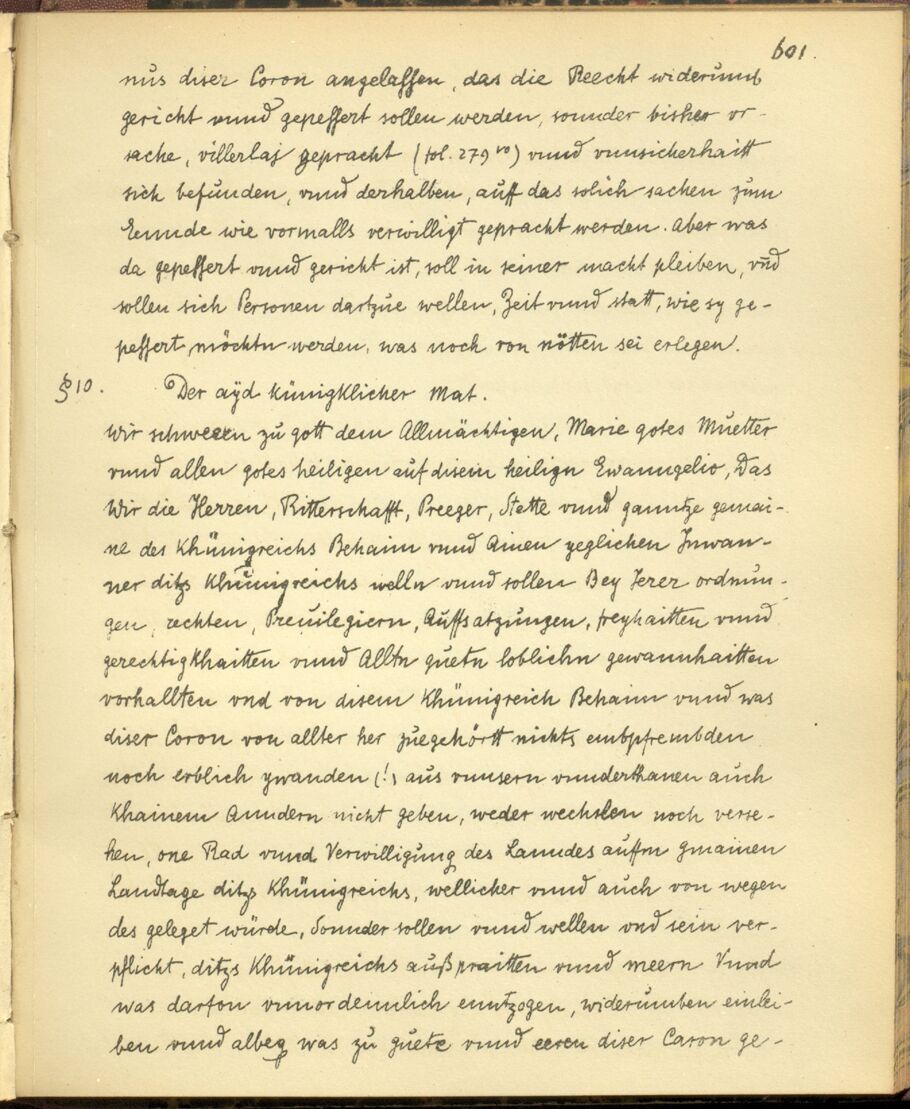 601.
nus diser Coron angelassen, das die Reecht widerumb
gericht vnnd gepessert sollen werden, sonnder bisher vr-
sache, villerlaj gepracht (fol. 279 vo) vnnd vnnsicherhaitt
sich befunden, vnnd derhalben, auff das solich sachen zum
Ennde wie vormalls verwilligt gepracht werden. Aber was
da gepessert vnnd gericht ist, soll in seiner macht pleiben, vnd
sollen sich Personen dartzue wellen, Zeit vnnd statt, wie sy ge-
pessert möchtn werden, was noch von nötten sei erlegen.
§ 10. Der aÿd künigklicher Mat.
Wir schweren zu gott dem Allmächtigen, Marie gotes Muetter
vnnd allen gotes heiligen auf disem heilign Ewanngelio, Das
Wir die Herren, Ritterschafft, Preeger, Stette vnnd ganntze gemai-
ne des Khünigreichs Behaim vnnd Ainen yeglichen Inwan-
ner ditzs Khünigreichs welln vnnd sollen Bey Jerer ordnun-
gen, rechten, Preuilegiern, Auffsatzungen, freyhaitten vnnd
gerechtigkhaitten vnnd Alltn guetn loblichn gewannhaitten
vorhallten vnd von disem Khünigreich Behaim vnnd was
diser Coron von allter her zuegehörtt nichts embpfrembden
noch erblich ywanden (!) aus vnnsern vnnderthanen auch
Khainem Anndern nicht geben, weder wechslen noch verse-
hen, one Rad vnnd Verwilligung des Lanndes auffm gmainen
Landtage ditzs Khünigreichs, wellicher vnnd auch von wegen
des geleget würde, Sonnder sollen vnnd wellen vnd sein ver-
pflicht, ditzs Khünigreichs außpraitten vnnd meern Vnnd
was darfon vnnordennlich enntzogen, widerumben einlei-
ben vnnd albeg was zu guete vnnd eeren diser Caron ge-